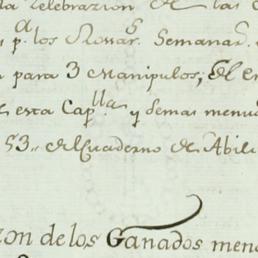 la Celebrazion de las
p.ª los Rossar.s Semanas.
para 3 manipulos; el en
esta Cap.lla y demas menu
53.. del Quaderno de Abili
zon de los Ganados men